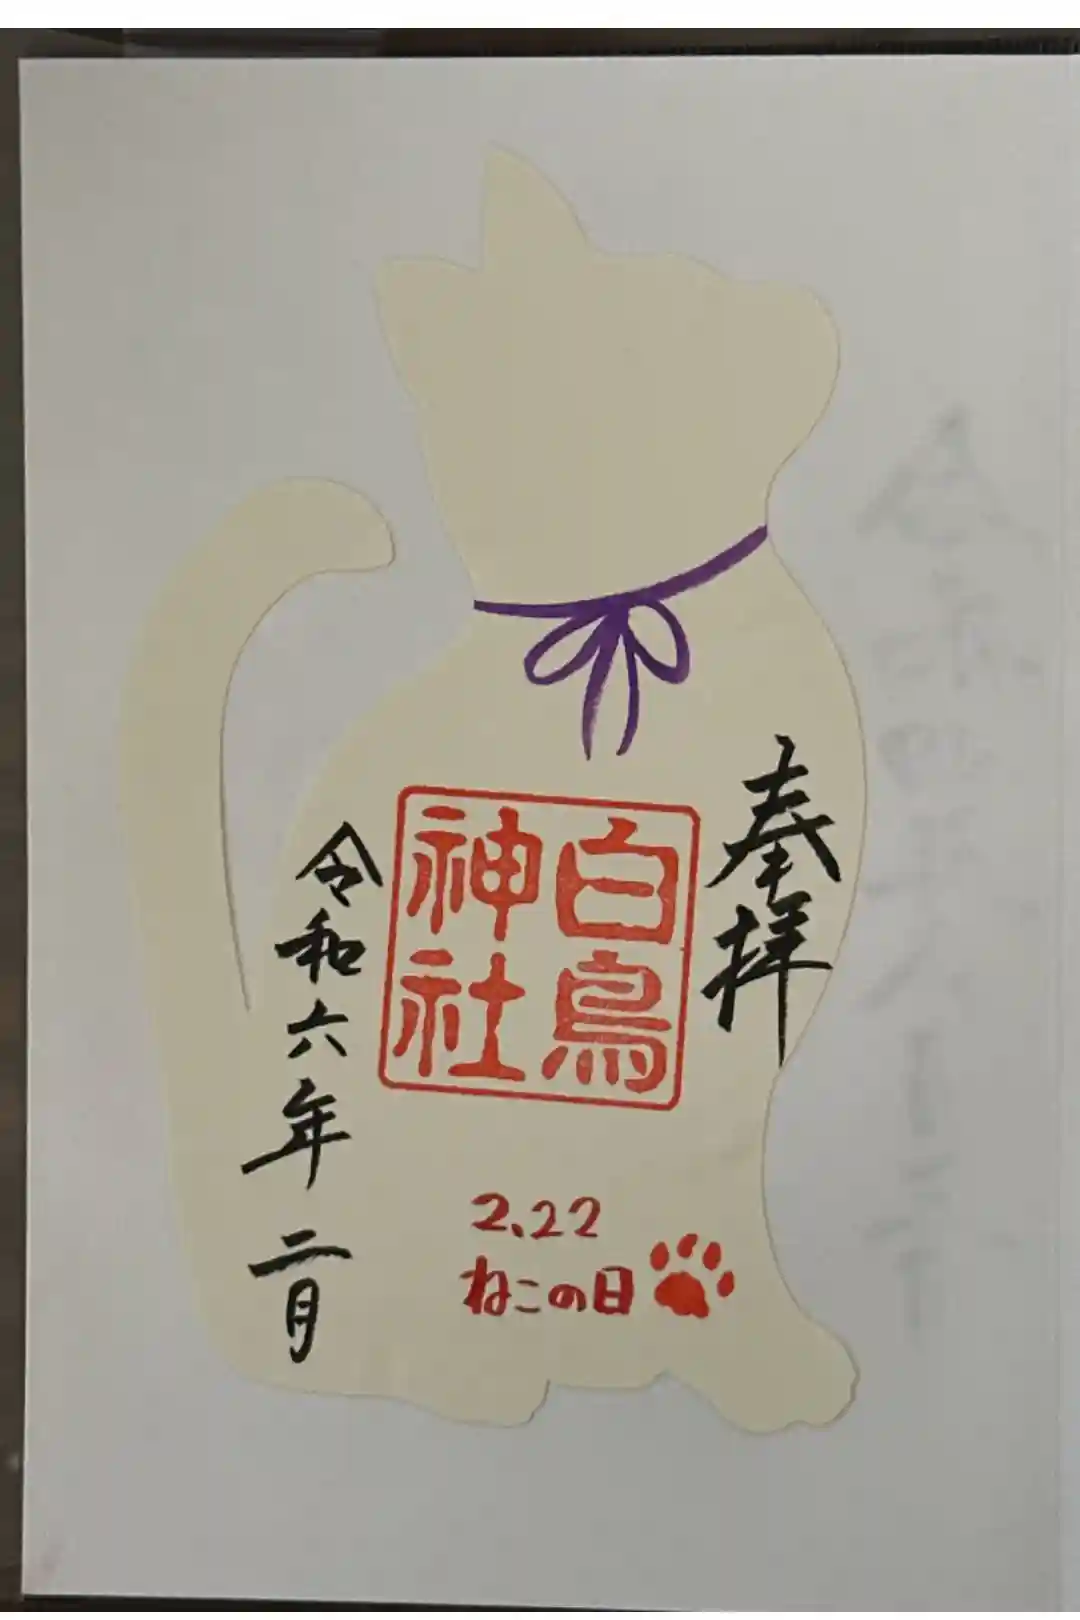 奉拝
白鳥
神社
令和六年二月
2.22
ねこの日